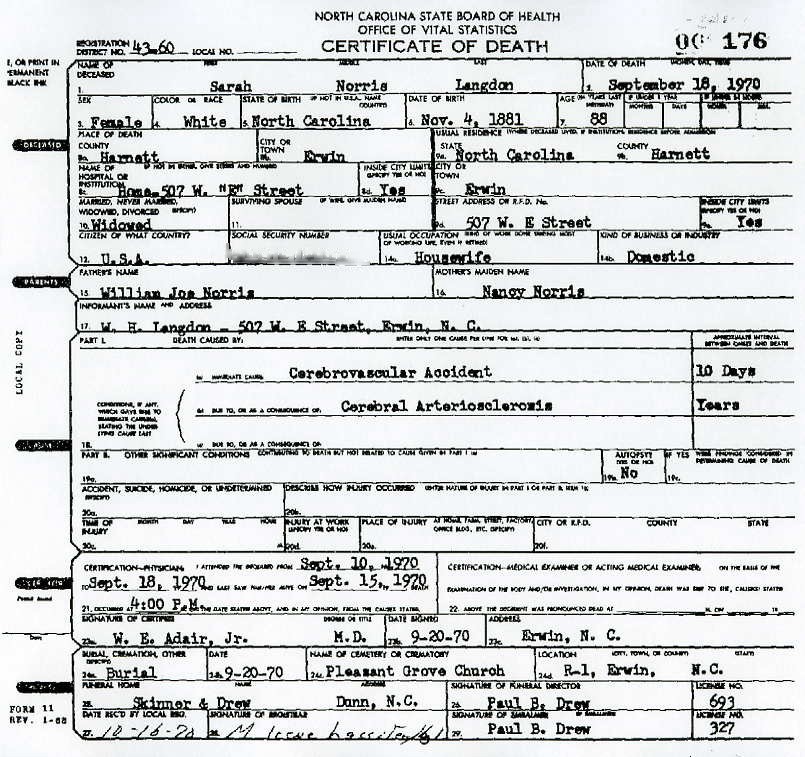 NORTH CAROLINA STATE BOARD OF HEALTH
OFFICE OF VITAL STATISTICS
CERTIFICATE OF DEATH
REGISTRATION DISTRICT NO. 43-60 LOCAL NO. 176
NAME OF DECEASED FIRST MIDDLE LAST DATE OF DEATH
1. Sarah Norris Langdon 2. September 18, 1970
SEX COLOR OR RACE STATE OF BIRTH DATE OF BIRTH AGE
3. Female 4. White 5. North Carolina 6. Nov. 4, 1881 7. 88
PLACE OF DEATH USUAL RESIDENCE
COUNTY CITY OR TOWN STATE COUNTY
8a. Harnett 8b. Erwin 9a. North Carolina 9b. Harnett
NAME OF HOSPITAL OR INSTITUTION INSIDE CITY LIMITS CITY OR TOWN
8c. Home-507 W. "E" Street 8d. Yes 9c. Erwin
MARRIED, NEVER MARRIED, WIDOWED, DIVORCED SURVIVING SPOUSE STREET ADDRESS OR R.F.D. No. INSIDE CITY LIMITS
10. Widowed 11. 9d. 507 W. E Street 9e. Yes
CITIZEN OF WHAT COUNTRY? SOCIAL SECURITY NUMBER USUAL OCCUPATION KIND OF BUSINESS OR INDUSTRY
12. U.S.A. 14a. Housewife 14b. Domestic
FATHER'S NAME MOTHER'S MAIDEN NAME
15. William Joe Norris 16. Nancy Norris
INFORMANT'S NAME AND ADDRESS
17. W. H. Langdon - 507 W. E Street, Erwin, N. C.
PART I. DEATH CAUSED BY: ENTER ONLY ONE CAUSE PER LINE APPROXIMATE INTERVAL BETWEEN ONSET AND DEATH
IMMEDIATE CAUSE Cerebrovascular Accident 10 Days
CONDITIONS, IF ANY, WHICH GAVE RISE TO IMMEDIATE CAUSE, STATING THE UNDERLYING CAUSE LAST
DUE TO, OR AS A CONSEQUENCE OF: Cerebral Arteriosclerosis Years
18. DUE TO, OR AS A CONSEQUENCE OF:
PART II. OTHER SIGNIFICANT CONDITIONS CONTRIBUTING TO DEATH BUT NOT RELATED TO CAUSE GIVEN IN PART I AUTOPSY IF YES
19a. 19b. No 19c.
ACCIDENT, SUICIDE, HOMICIDE, OR UNDETERMINED DESCRIBE HOW INJURY OCCURRED
20a. 20b.
TIME OF INJURY MONTH DAY YEAR HOUR INJURY AT WORK PLACE OF INJURY CITY OR R.F.D. COUNTY STATE
20c. 20d. 20e. 20f.
CERTIFICATION-PHYSICIAN: I ATTENDED THE DECEASED FROM Sept. 10, 1970 CERTIFICATION-MEDICAL EXAMINER OR ACTING MEDICAL EXAMINER: ON THE BASIS OF THE
TO Sept. 18, 1970 AND LAST SAW HIM/HER ALIVE ON Sept. 15, 1970 DEATH EXAMINATION OF THE BODY AND/OR INVESTIGATION, IN MY OPINION, DEATH WAS DUE TO THE CAUSE(S) STATED
21. OCCURRED AT 4:00 P.M. ON THE DATE STATED ABOVE, AND IN MY OPINION, FROM THE CAUSES STATED. 22. ABOVE. THE DECEDENT WAS PRONOUNCED DEAD AT
SIGNATURE OF CERTIFIER DEGREE OR TITLE DATE SIGNED ADDRESS
23a. W. E. Adair, Jr. M.D. 23b. 9-20-70 23c. Erwin, N. C.
BURIAL, CREMATION, OTHER DATE NAME OF CEMETERY OR CREMATORY LOCATION
24a. Burial 24b. 9-20-70 24c. Pleasant Grove Church 24d. R-1, Erwin, N.C.
FUNERAL HOME NAME ADDRESS SIGNATURE OF FUNERAL DIRECTOR LICENSE NO.
25. Skinner & Drew Dunn, N.C. 26. Paul B. Drew 693
DATE REC'D BY LOCAL REG. SIGNATURE OF REGISTRAR SIGNATURE OF EMBALMER LICENSE NO.
27. 10-16-70 28. 29. Paul B. Drew 327
LOCAL COPY
PARENTS
FORM 11
REV. 1-68